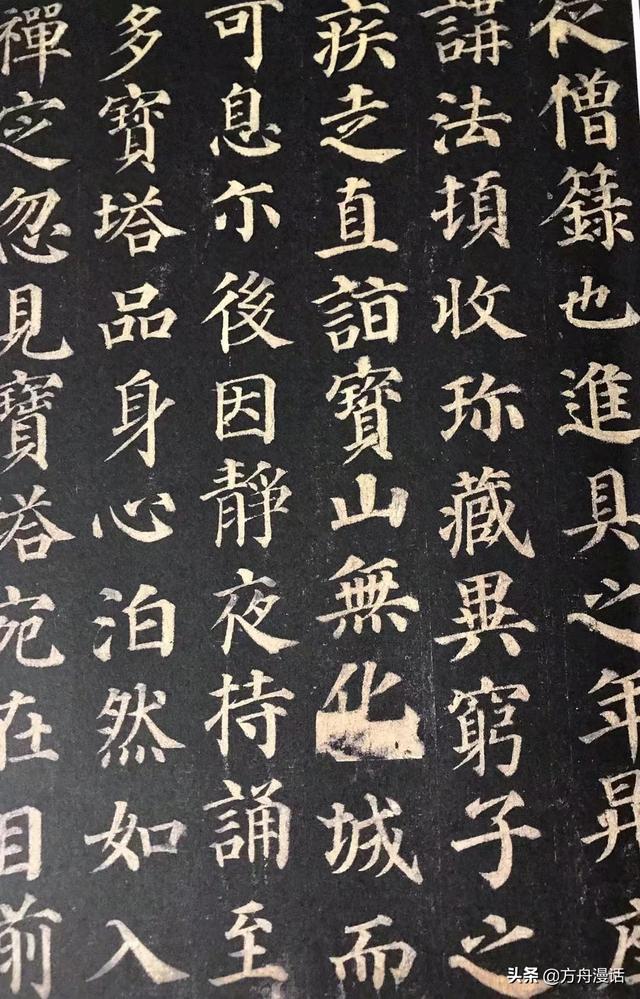 從僧籙也進具之年昇座
講法頃收珎藏異窮子之
疾走直詣寶山無化城而
可息尒後因靜夜持誦至
多寶塔品身心泊然如入
禪定忽見寶塔宛在目前
头条 @方舟漫话